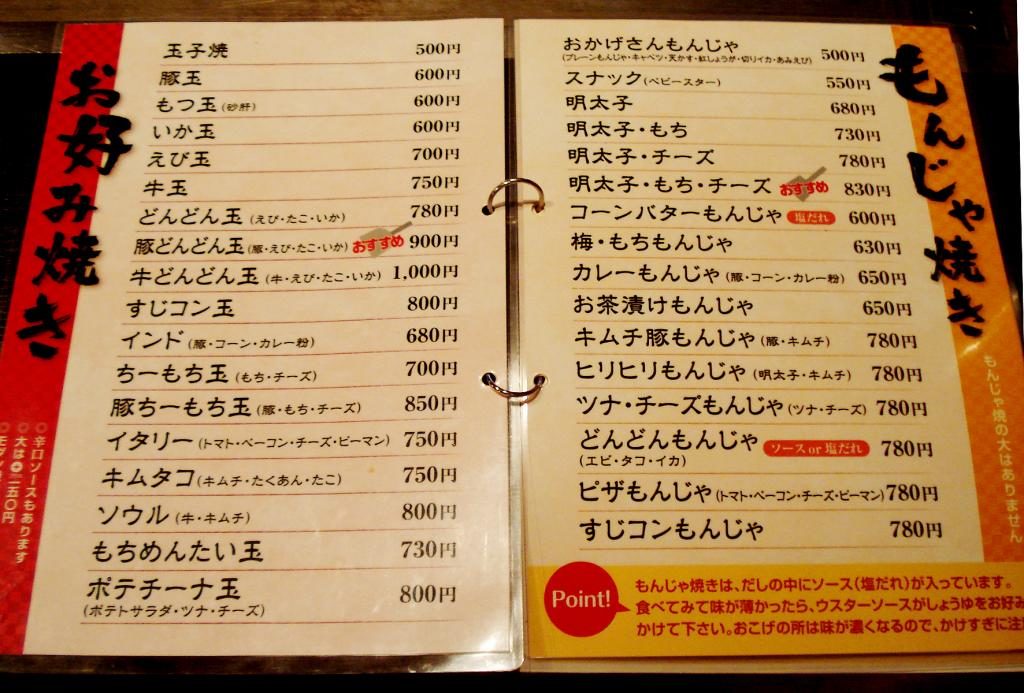 お好み焼き
玉子焼 500円
豚玉 600円
もつ玉(砂肝) 600円
いか玉 600円
えび玉 700円
牛玉 750円
どんどん玉(えび・たこ・いか) 780円
豚どんどん玉(豚・えび・たこ・いか) おすすめ 900円
牛どんどん玉(牛・えび・たこ・いか) 1,000円
すじコン玉 800円
インド(豚・コーン・カレー粉) 680円
ちーもち玉(もち・チーズ) 700円
豚ちーもち玉(豚・もち・チーズ) 850円
イタリー(トマト・ベーコン・チーズ・ピーマン) 750円
キムタコ(キムチ・たくあん・たこ) 750円
ソウル(牛・キムチ) 800円
もちめんたい玉 730円
ポテチーナ玉 800円
(ポテトサラダ・ツナ・チーズ)
○辛口ソースもあります
○大は+一五〇円
もんじゃ焼き
おかげさんもんじゃ 500円
(プレーンもんじゃ・キャベツ・天かす・紅しょうが・切りイカ・あみえび)
スナック(ベビースター) 550円
明太子 680円
明太子・もち 730円
明太子・チーズ 780円
明太子・もち・チーズ おすすめ 830円
コーンバターもんじゃ 塩だれ 600円
梅・もちもんじゃ 630円
カレーもんじゃ(豚・コーン・カレー粉) 650円
お茶漬けもんじゃ 650円
キムチ豚もんじゃ(豚・キムチ) 780円
ヒリヒリもんじゃ(明太子・キムチ) 780円
ツナ・チーズもんじゃ(ツナ・チーズ) 780円
どんどんもんじゃ ソース or 塩だれ 780円
(エビ・タコ・イカ)
ピザもんじゃ(トマト・ベーコン・チーズ・ピーマン) 780円
すじコンもんじゃ 780円
もんじゃ焼の大はありません
Point!
もんじゃ焼きは、だしの中にソース(塩だれ)が入っています。
食べてみて味が薄かったら、ウスターソースがしょうゆをお好み
かけて下さい。おこげの所は味が濃くなるので、かけすぎに注